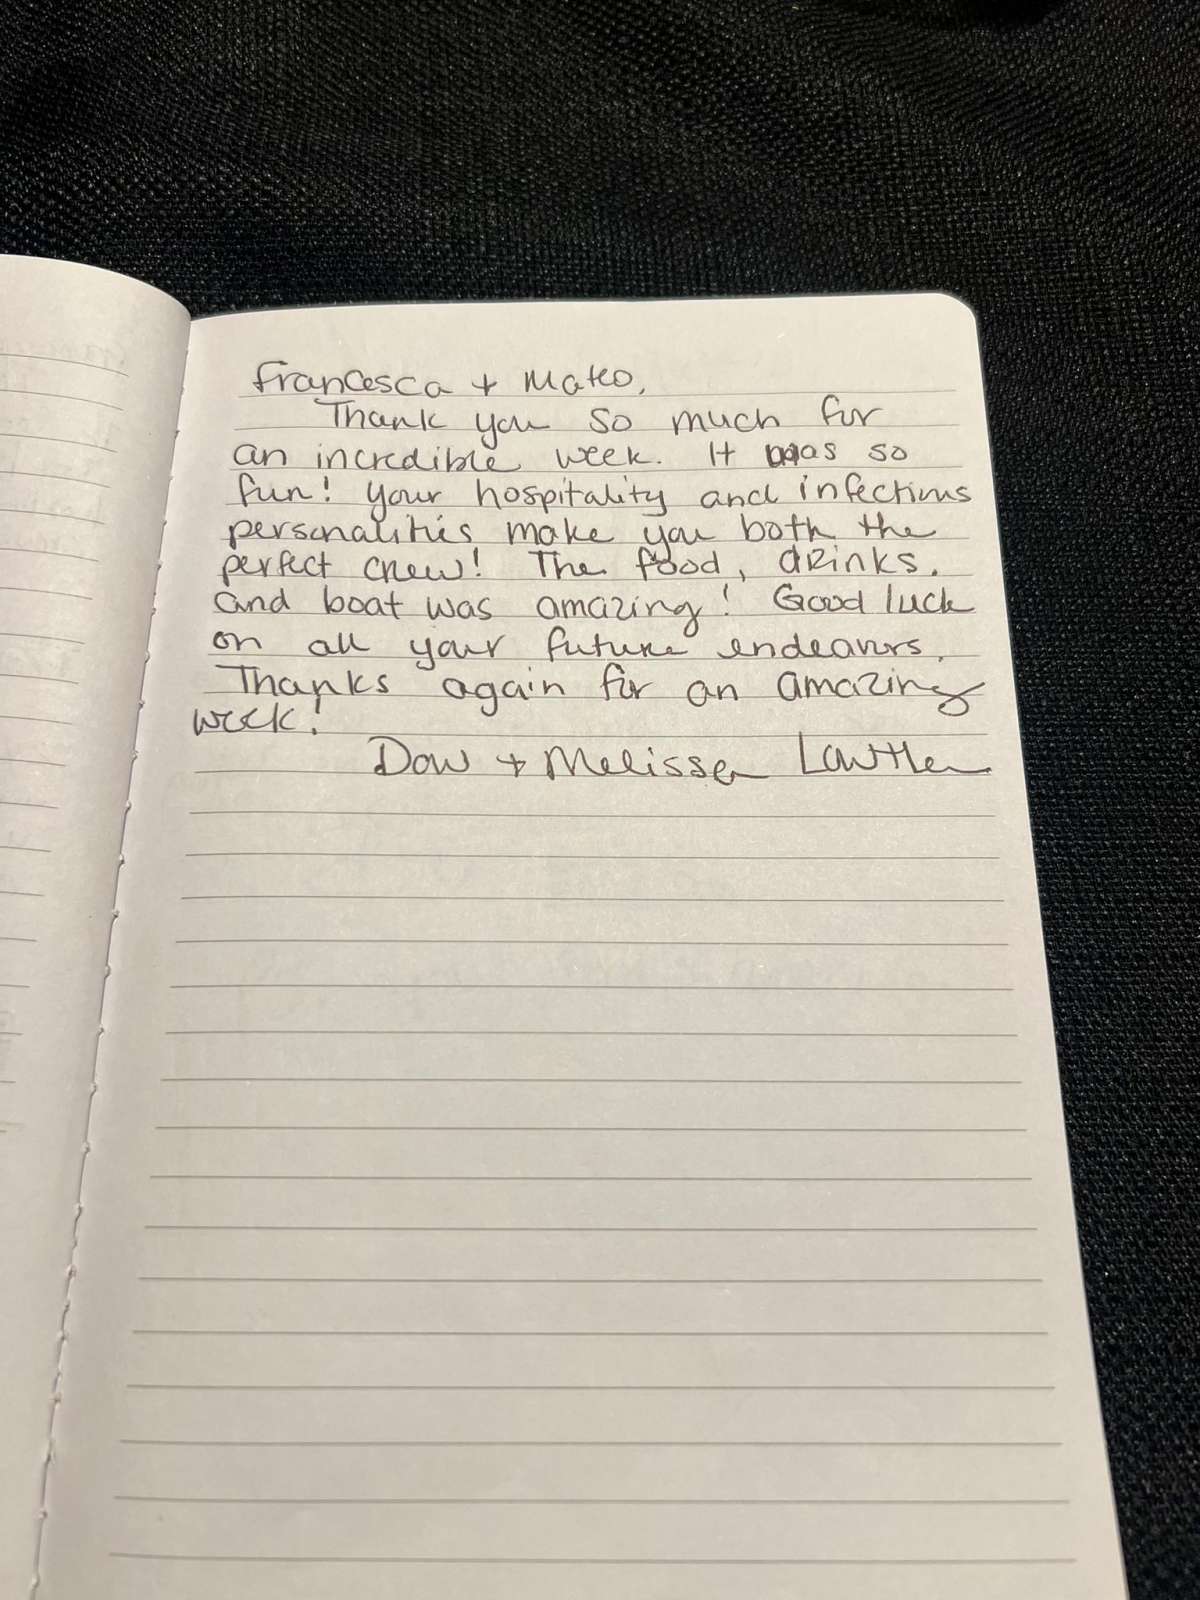 Francesca + Mateo,
Thank you so much for
an incredible week. It was so
fun! Your hospitality and infectious
personalities make you both the
perfect crew! The food, drinks,
and boat was amazing! Good luck
on all your future endeavors.
Thanks again for an amazing
week!
Dow + Melissa